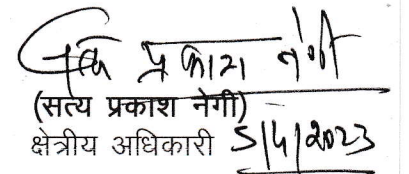 सत्य प्रकाश नेगी
(सत्य प्रकाश नेगी)
क्षेत्रीय अधिकारी 5/4/2023